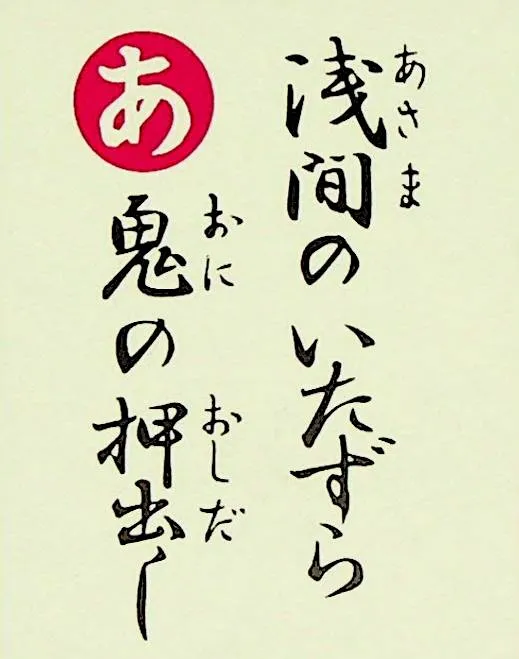 浅間のいたずら
あさま
あ
鬼の押出し
おに
おしだ